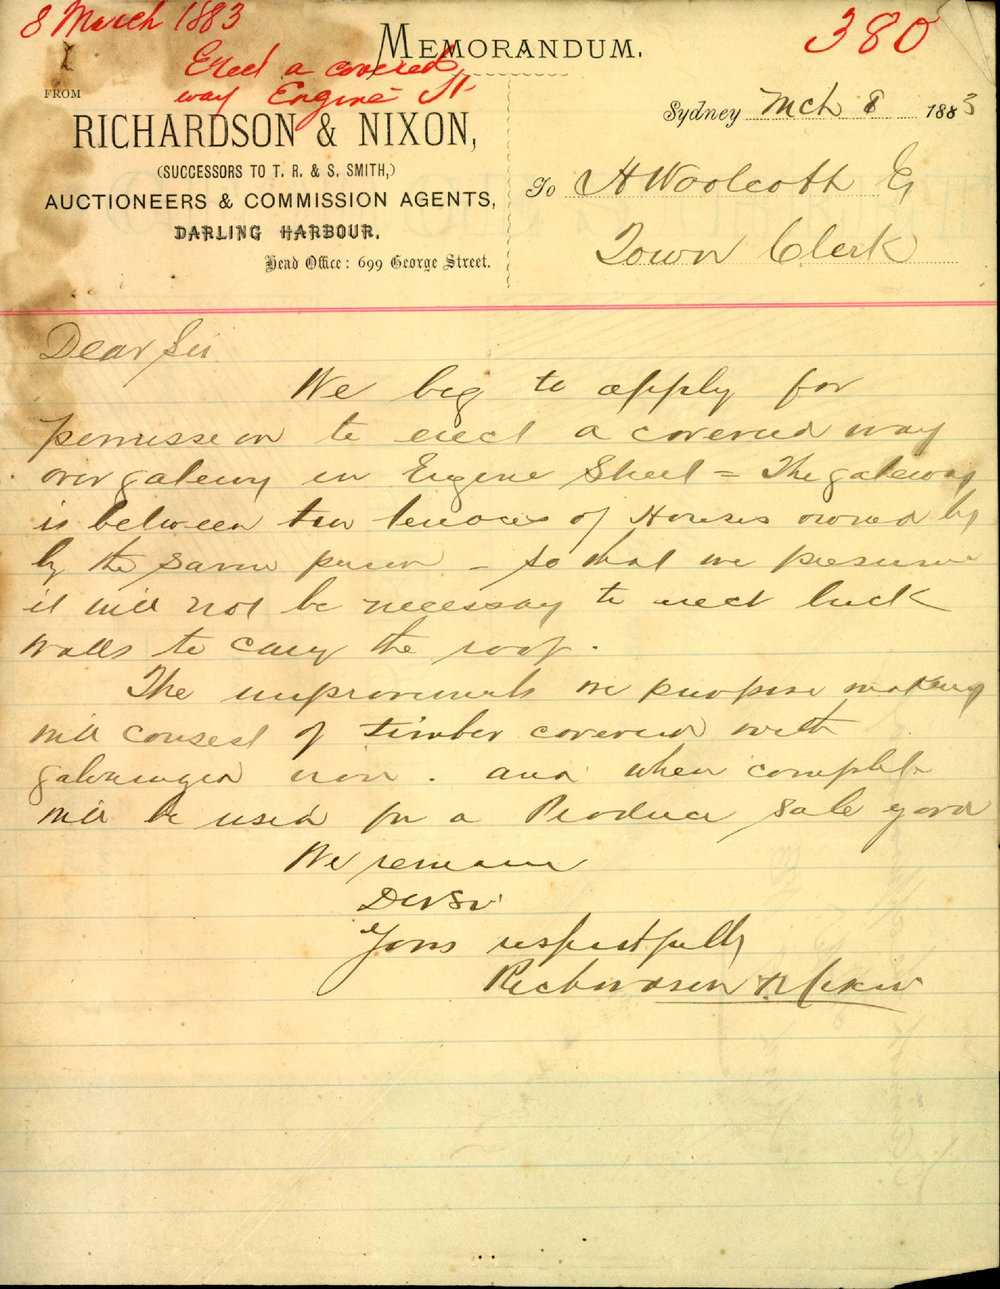 8 March 1883
380
MEMORANDUM.
Erect a covered
way Engine St
FROM
RICHARDSON & NIXON,
(SUCCESSORS TO T. R. & S. SMITH,)
AUCTIONEERS & COMMISSION AGENTS,
DARLING HARBOUR.
Head Office: 699 George Street.
Sydney Mch 8 1883
To H Woolcott Eq
Town Clerk
Dear Sir
We beg to apply for
permission to erect a covered way
over gateway in Engine Street = The gateway
is between two terraces of Houses owned by
by the same person - so that we presume
it will not be necessary to erect brick
walls to carry the roof.
The improvements we purpose making
will consist of timber covered with
galvanized iron. and when complete
will be used for a Produce Sale yard
We remain
Dear Sir
Yours respectfully
Richardson & Nixon